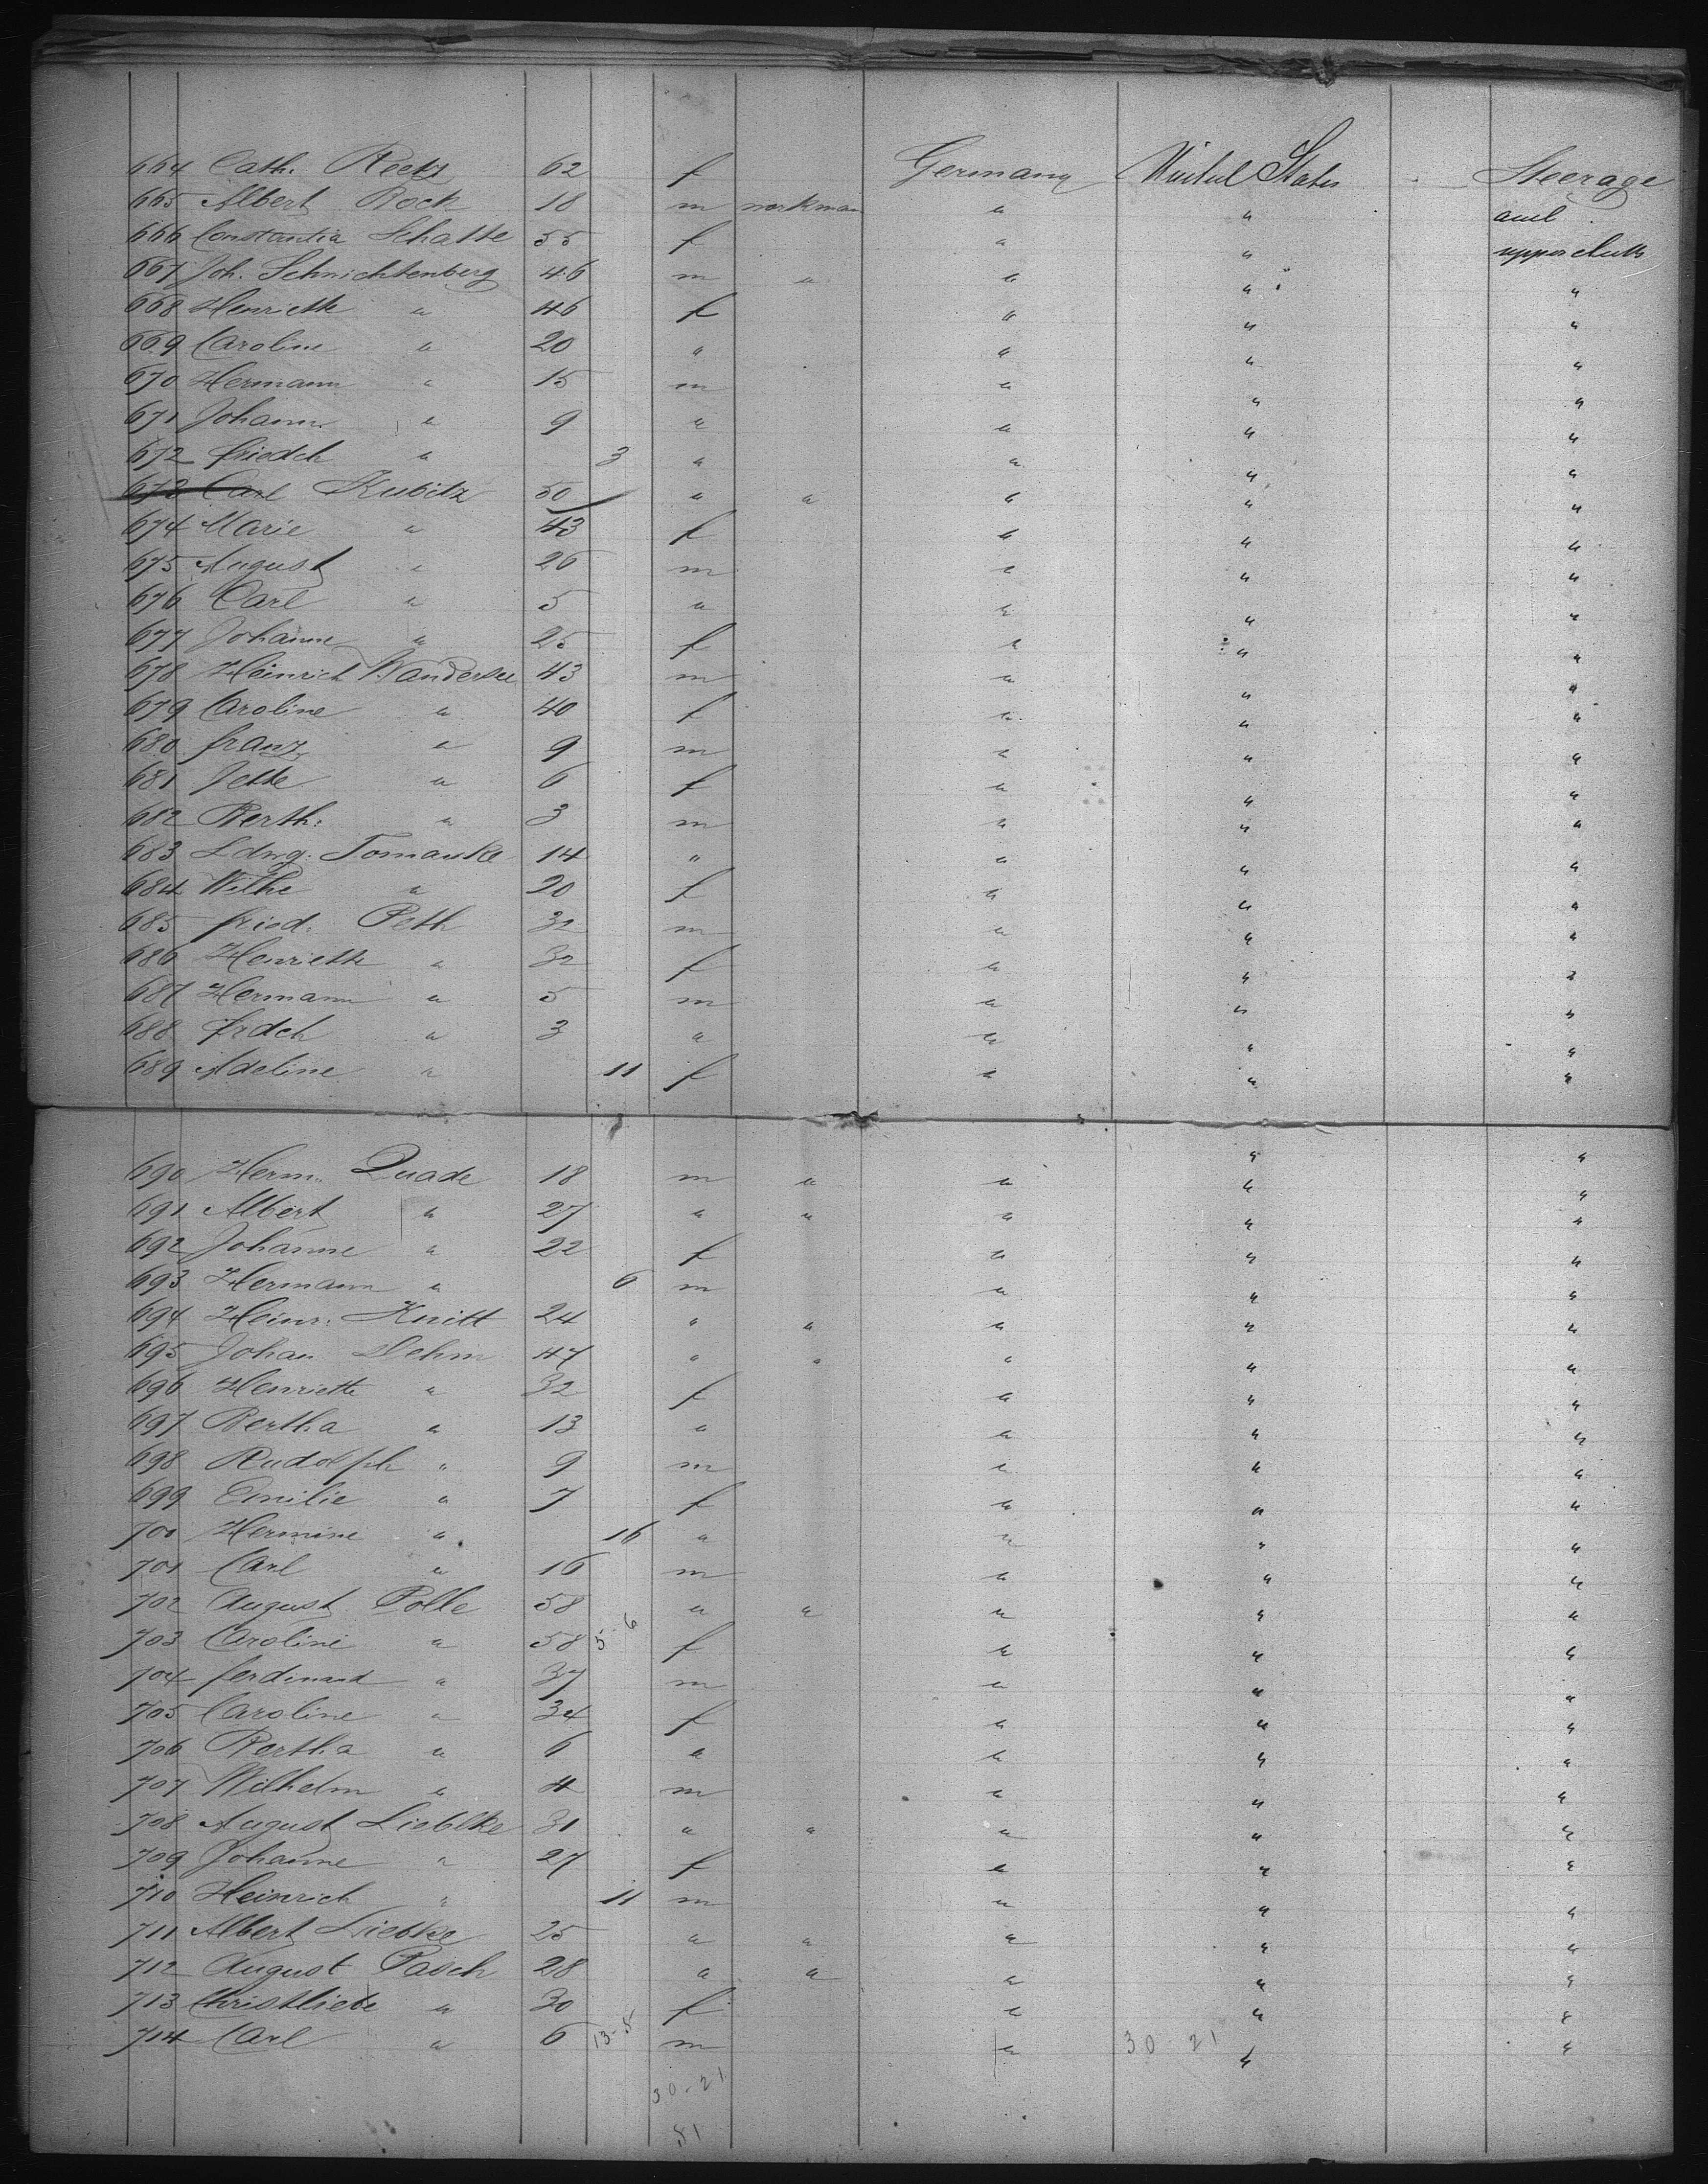 664 Cath. Reeks 62 f Germany United States Steerage
665 Albert Rock 18 m workman " " and
666 Constantia Schatte 55 f " " upper deck
667 Joh. Schnichtenberg 46 m " " " "
668 Henriette " 46 f " " "
669 Caroline " 20 " " " "
670 Hermann " 15 m " " "
671 Johann " 9 " " " "
672 Friedch " 3 " " " "
673 Carl Kubitz 50 " " " " "
674 Marie " 43 f " " "
675 August " 26 m " " "
676 Carl " 5 " " " "
677 Johanne " 25 f " " "
678 Heinrich Wandersee 43 m " " "
679 Caroline " 40 f " " "
680 Franz " 9 m " " "
681 Jette " 6 f " " "
682 Berth: " 3 m " " "
683 Ldwg. Tomaske 14 " " " "
684 Wilhe " 20 f " " "
685 Fried. Peth 32 m " " "
686 Henriette " 32 f " " "
687 Hermann " 5 m " " "
688 Frdch " 3 " " " "
689 Adeline " 11 f " " "
690 Herm. Quade 18 m " " " "
691 Albert " 27 " " " " "
692 Johanne " 22 f " " "
693 Hermann " 6 m " " "
694 Heinr. Knitt 24 " " " " "
695 Johan Dehm 47 " " " " "
696 Henriette " 32 f " " "
697 Bertha " 13 " " " "
698 Rudolph " 9 m " " "
699 Emilie " 7 f " " "
700 Hermine " 16 " " " "
701 Carl " 16 m " " "
702 August Polle 58 " " " " "
703 Caroline " 58 5-6 f " " "
704 Ferdinand " 37 m " " "
705 Caroline " 34 f " " "
706 Bertha " 6 " " " "
707 Wilhelm " 4 m " " "
708 August Lieblke 31 " " " " "
709 Johanne " 27 f " " "
710 Heinrich " 11 m " " "
711 Albert Liebke 25 " " " " "
712 August Pasch 28 " " " " "
713 Christliebe " 30 f " " "
714 Carl " 6 13-5 m " 30-21 " "
30-21
51